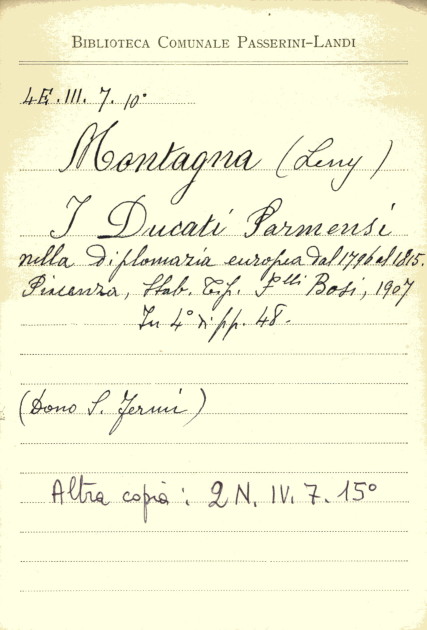 BIBLIOTECA COMUNALE PASSERINI-LANDI
4E.III.7.10°
Montagna (Leny)
I Ducati Parmensi
nella diplomazia europea dal 1796 al 1815.
Piacenza, Stab. Tip. F.lli Bosi, 1907
In 4° di pp. 48.
(Dono S. Fermi)
Altra copia: 2N.IV.7.15°